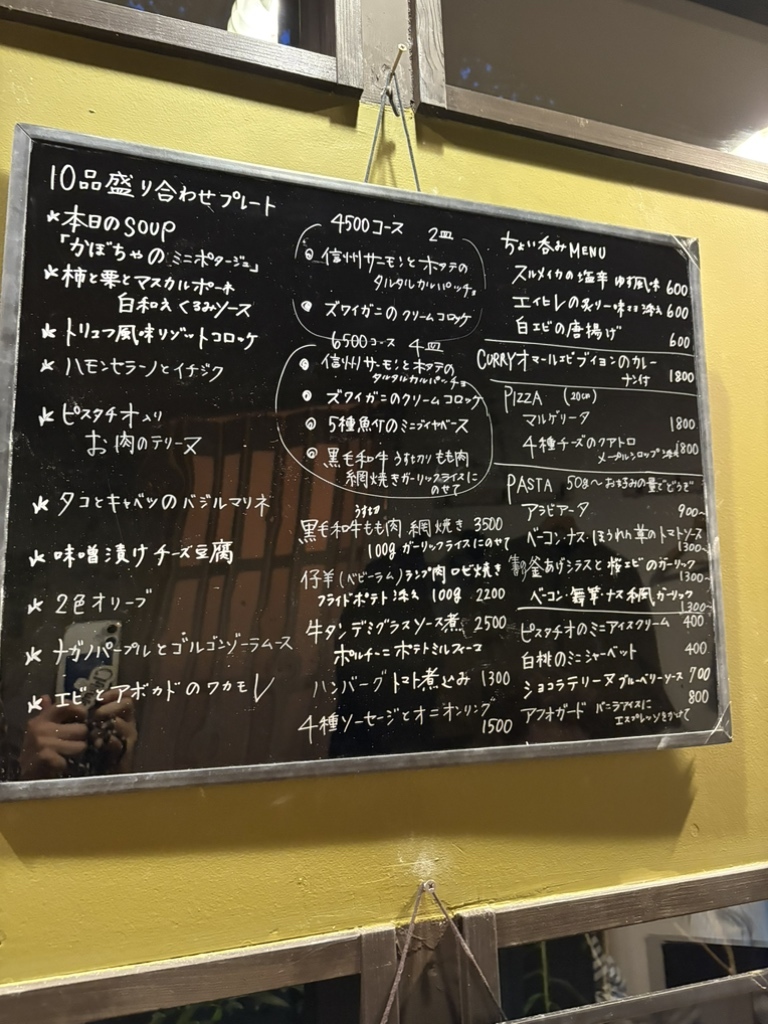 10品盛り合わせプレート
★本日のSOUP
「かぼちゃの ミニポタージュ」
★柿と栗とマスカルポーネ
白和え くるみソース
★トリュフ風味リゾットコロッケ
★ハモンセラーノとイチジク
★ピスタチオ入り
お肉のテリーヌ
★タコとキャベツのバジルマリネ
★味噌漬けチーズ豆腐
★2色オリーブ
★ナガノパープルとゴルゴンゾーラムース
★エビとアボカドのワカモレ
4500コース 2皿
信州サーモンとホタテの
タルタルカルパッチョ
ズワイガニのクリームコロッケ
6500コース 4皿
信州サーモンとホタテの
タルタルカルパッチョ
ズワイガニのクリームコロッケ
5種魚介のミニブイヤベース
黒毛和牛 うす切り もも肉
網焼きガーリックライスに
のせて
うす切り
黒毛和牛もも肉 網焼き 3500
100g ガーリックライスにのせて
仔羊(ベビーラム)ランプ肉 ロゼ焼き
フライドポテト 添え 100g 2200
牛タン デミグラスソース煮 2500
ポルチーニ ポテトミルフィーユ
ハンバーグ トマト煮込み 1300
4種ソーセージとオニオンリング
1500
ちょい呑みMENU
スルメイカの塩辛 ゆず風味 600
エイヒレの炙り一味マヨ添え 600
白エビの唐揚げ
600
CURRY オマールエビブイヨンのカレー
ナン付 1800
PIZZA (20cm)
マルゲリータ 1800
4種チーズのクアトロ
メープルシロップ添え 1800
PASTA 50g〜お好みの量でどうぞ
アラビアータ 900〜
ベーコン・ナス・ほうれん草のトマトソース
1300〜
釜あげシラスと桜エビのガーリック
1300〜
ベーコン・舞茸・ナス和風ガーリック
1300〜
ピスタチオのミニアイスクリーム 400
白桃のミニシャーベット 400
ショコラテリーヌ ブルーベリーソース 700
アフォガード バニラアイスに 800
エスプレッソをかけて